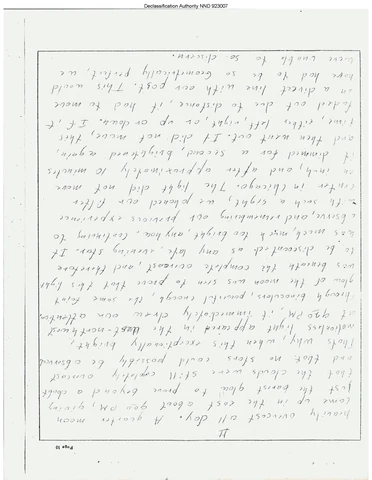 Declassification Authority NND 923007
Page 10
II
heavily overcast all day. A quarter moon
came up in the east about 900 PM, giving
just the barest glow to prove beyond a doubt
that the clouds were still completely overcast
and that no stars could possibly be observed
That's why, when this exceptionally bright,
motionless light appeared in the -northwest
at 920 PM, it immediately drew our attention.
Through binoculars, powerful enough, the same faint
glow of the moon was seen to prove that this light
was beneath the complete overcast, and therefore
to be discounted as any late evening star. It
was much, much too bright, any how. Continuing to
observe, and remembering our previous experience
with such a sight, we phoned our filter
center in Chicago. The light did not move
an inch, and after approximately 10 minutes
it dimmed for a second, brightened again,
and then went out. It did not move, this
time, either left, right, or up or down. If it
faded out due to distance, it had to move
in a direct line with our post. This would
have had to be so Geometrically perfect, we
were unable to so discern.